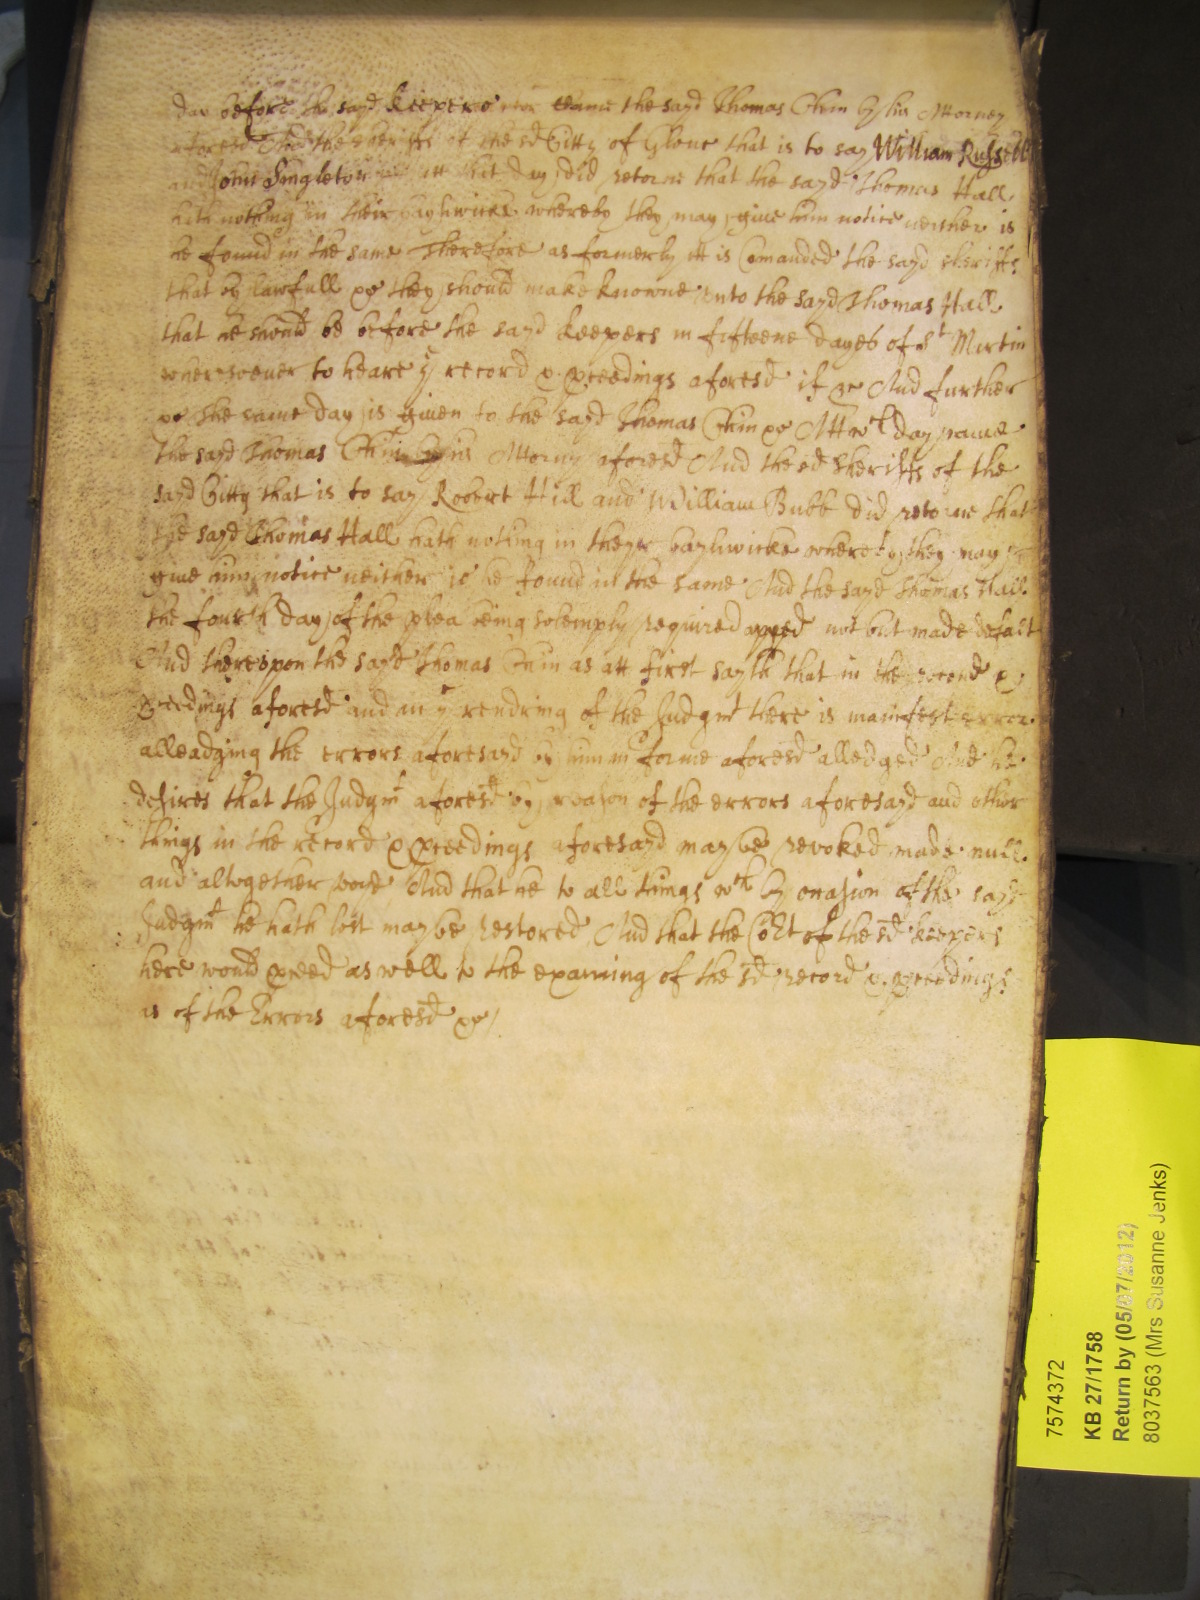 day before the sayd Keepers &c came the sayd Thomas by his Attorney
aforesd And the sheriffs of the sd Citty of Glouc that is to say William Russell
and John Singleton att that day did retorne that the sayd Thomas Hall
hath nothing in their baylywicke whereby they may give him notice neither is
he found in the same Therefore as formerly itt is Comanded the sayd sheriffs
that by lawfull &c they should make knowne unto the sayd Thomas Hall
that he should be before the sayd keepers in fifteene dayes of St Martin
wheresoever to heare ye record & pceedings aforesd if &c And further
&c the same day is given to the sayd Thomas &c Att wch day came
the sayd Thomas by his Attorny aforesd And the sd Sheriffs of the
sayd Citty that is to say Robert Hill and William Bubb did retorne that
the sayd Thomas Hall hath nothing in theyr baylywicke whereby they may
give him notice neither is he found in the same And the sayd Thomas Hall
the fourth day of the plea being solemply required appeed not but made defalt
And thereupon the sayd Thomas as att first sayth that in the record &
pceedings aforesd and in ye rendring of the Judgmt there is manifest error
alleadging the errors aforesayd by him in forme aforesd alledged And he
desires that the Judgmt aforesd by reason of the errors aforesayd and other
things in the record & pceedings aforesayd may be revoked made null
and altogether voyd And that he to all things wch by occasion of the sayd
Judgmt he hath lost may be restored And that the Cort of the sd keepers
here would pceed as well to the examing of the sd record & pceedings
as of the Errors aforesd &c
7574372
KB 27/1758
Return by (05/07/2012)
8037563 (Mrs Susanne Jenks)